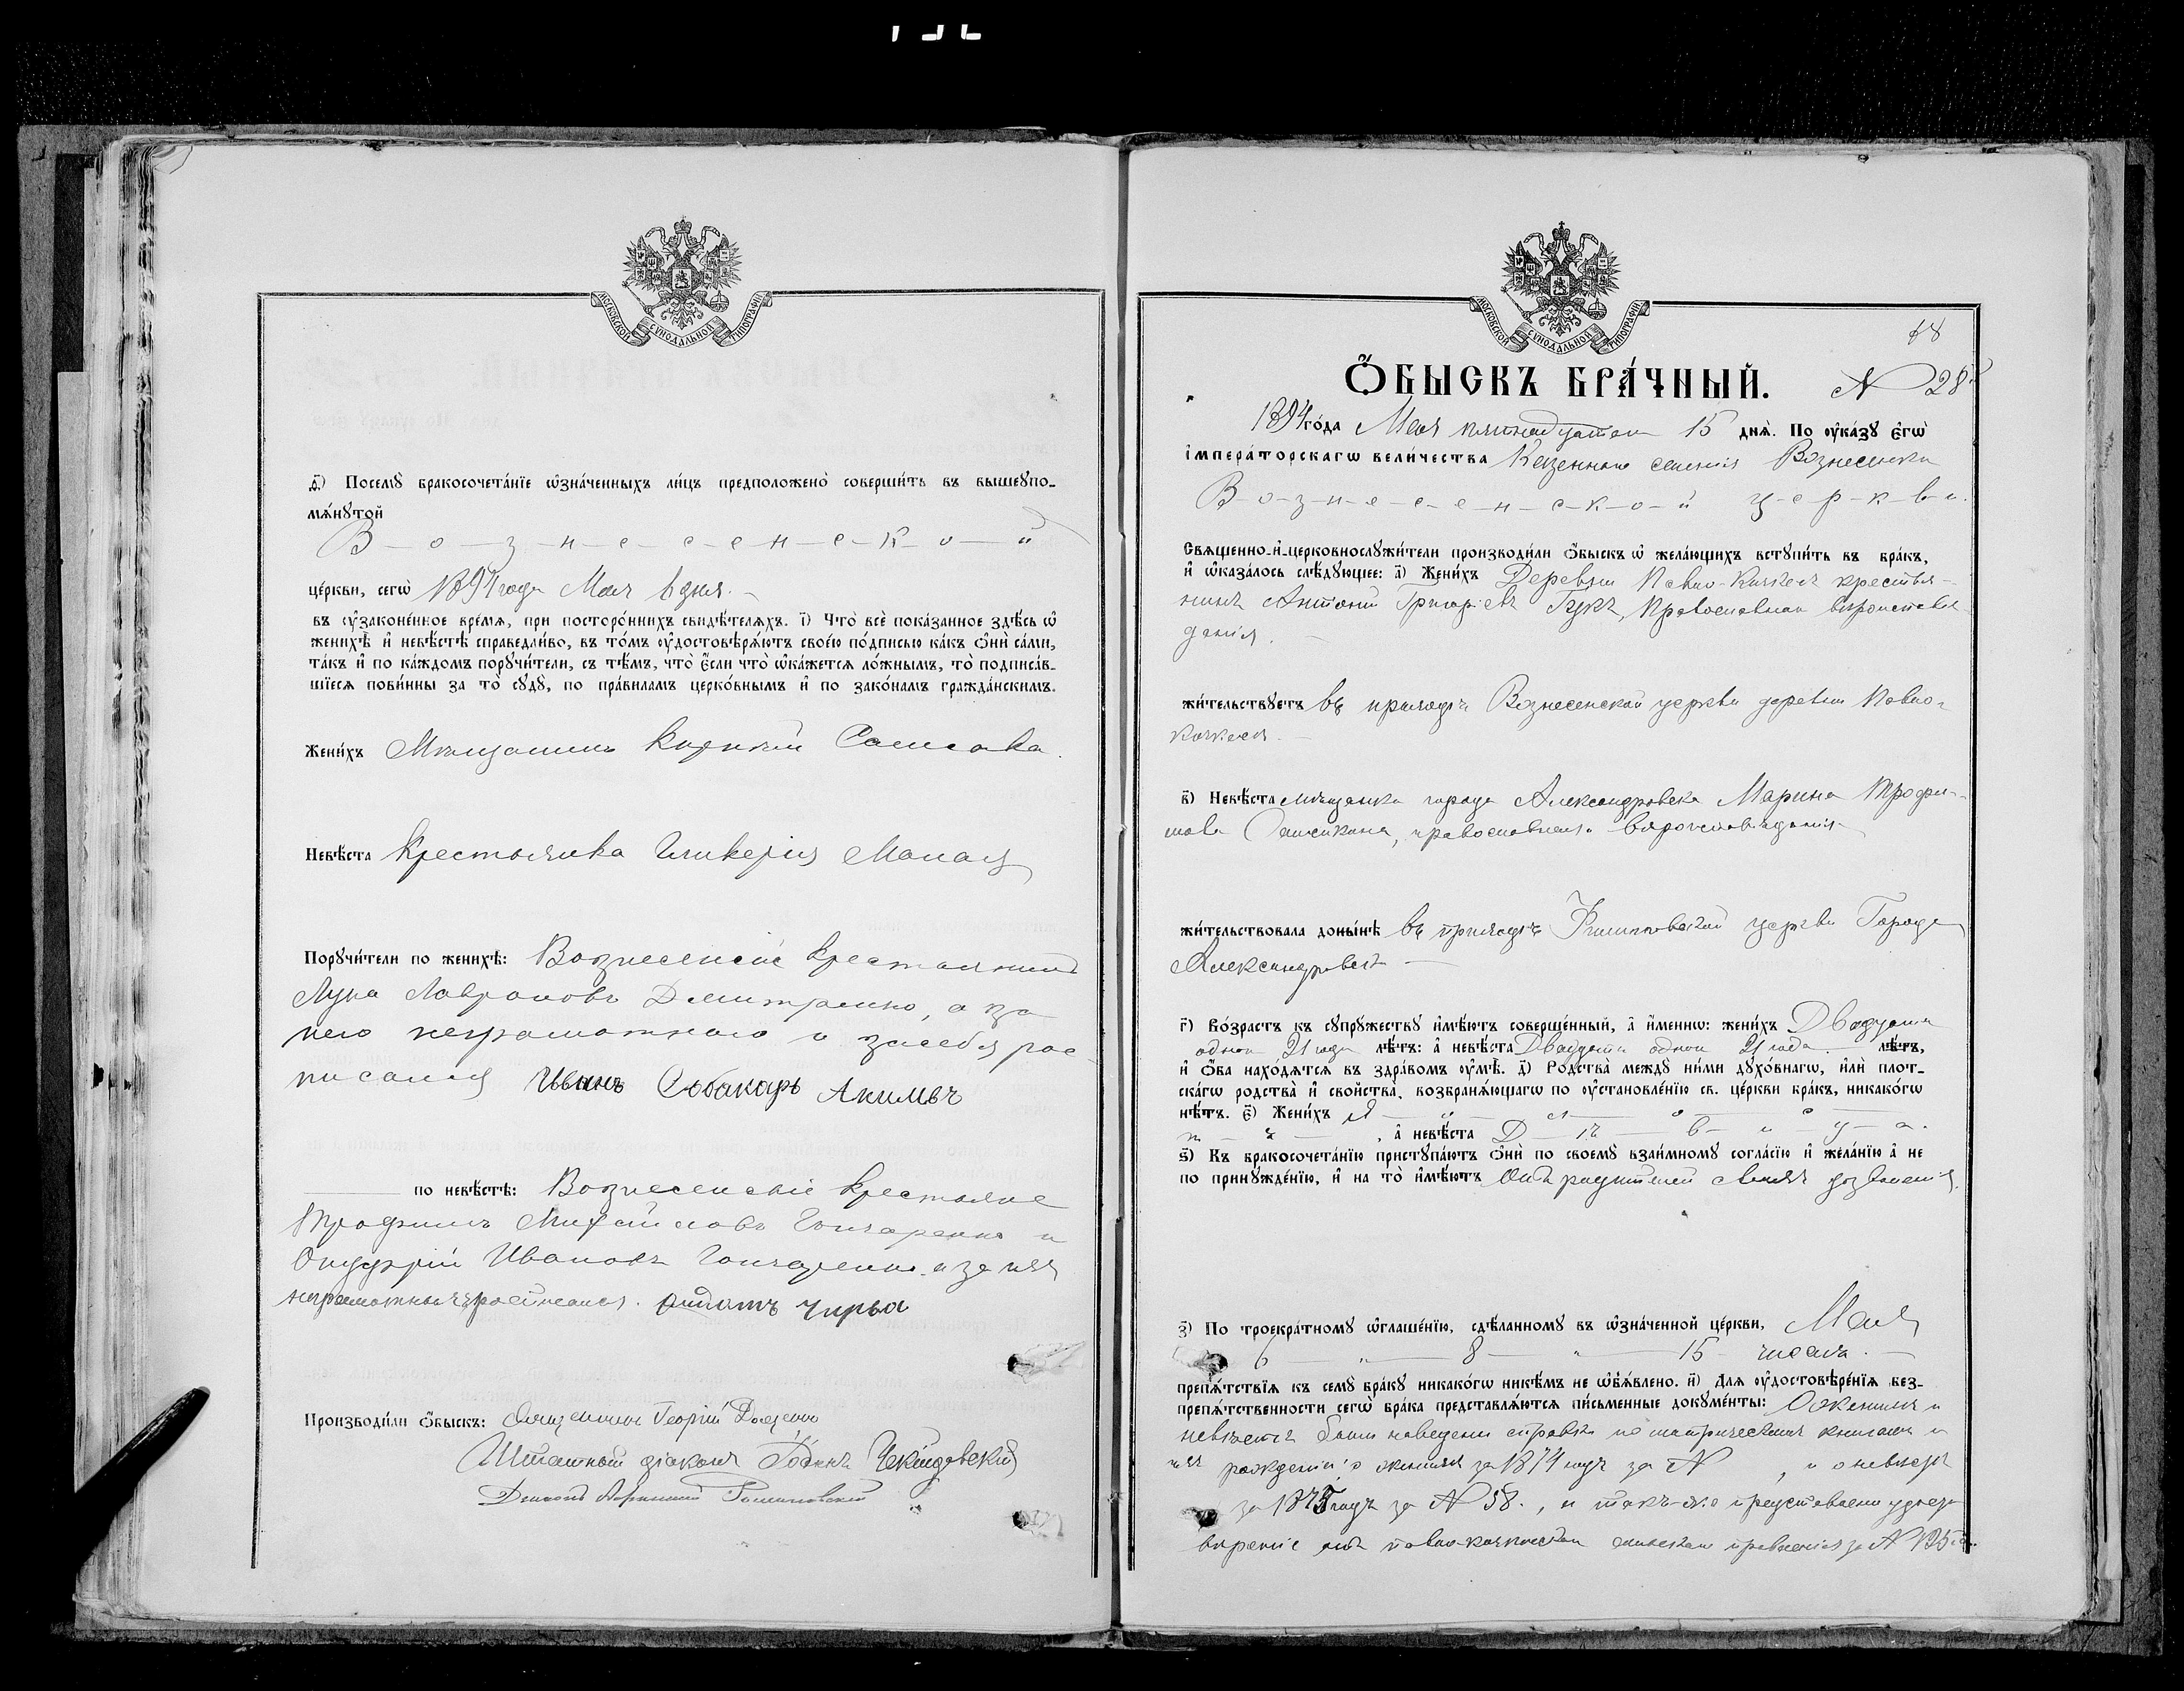 МОСКОВСКОЙ СУНОДАЛЬНОЙ ТИПОГРАФІИ.
д҃) Посемꙋ бракосочета́нїе ѡ҆зна́ченныхъ ли́цъ предположено̀ соверши́ть въ вышеꙋпо-
мѧ́нꙋтой
В-о-з-н-е-с-е-н-с-к-о-й
це́ркви, сегѡ̀ 1894 года Мая 6 дня.
въ ᲂу҆законе́нное вре́мѧ, при посторо́ннихъ свидѣ́телѧхъ. і҃) Что̀ всѐ пока́занное здѣ́сь ѡ҆
женихѣ̀ и҆ невѣ́стѣ справедли́во, въ то́мъ ᲂу҆достовѣрѧ́ютъ свое́ю по́дписью ка́къ ѻ҆нѝ са́ми,
та́къ и҆ по ка́ждомъ порꙋчи́тели, съ тѣ́мъ, что̀ є҆́сли что̀ ѡ҆ка́жетсѧ ло́жнымъ, то̀ подписа́в-
шїесѧ пови́нны за то̀ сꙋдꙋ̀, по пра́виламъ церко́внымъ и҆ по зако́намъ гражда́нскимъ.
Жени́хъ Мѣщанинъ Корнѣй
Невѣ́ста Крестьянка Гликерія
Порꙋчи́тели по женихѣ̀: Вознесенскіе крестьянинъ
Лука Лавроновъ Дмитренко, а за
него неграмотного и засебя рос-
писался Иванъ Собакарь Акимовъ
по невѣ́стѣ: Вознесенскіе крестьяне
Трофимъ Михайловъ Гончаренко и
Онуфрій Ивановъ Гончаренко, а за них
неграмотныхъ росписался Чирва
Производи́ли ѻ҆́быскъ: Священникъ Георгій
Штатный діаконъ
МОСКОВСКОЙ СУНОДАЛЬНОЙ ТИПОГРАФІИ.
68
Ѻ҆́БЫСКЪ БРА́ЧНЫЙ. N 28
1894 го́да Мая пятнадцатаго 15 днѧ̀. По ᲂу҆ка́зꙋ є҆гѡ̀
і҆мпера́торскагѡ вели́чества Казенного селенія Вознесенки
В-о-з-н-е-с-е-н-с-к-о-й ц-е-р-к-в-и.
Свѧще́нно-и҆-церковнослꙋжи́тели производи́ли ѻ҆́быскъ ѡ҆ жела́ющихъ встꙋпи́ть въ бра́къ,
и҆ ѡ҆каза́лось слѣ́дꙋющее: а҃) Жени́хъ Деревни Павло-Кичкасъ крестья-
нинъ Антоній Григоріевъ Гукъ, Православнаго вѣроисповѣ-
данія.
жи́тельствꙋетъ въ приходѣ Вознесенской церкви деревни Павло-
Кичкасъ
в҃) Невѣ́ста мѣщанка города Александровска Марина Трофи-
мова, православнаго вѣроисповѣданія
жи́тельствовала доны́нѣ въ приходѣ церкви Города
Александровска
г҃) Во́зрастъ къ сꙋпрꙋ́жествꙋ и҆мѣ́ютъ соверше́нный, а҆ и҆́меннѡ: жени́хъ Двадцати
одного 21 года лѣ́тъ: а҆ невѣ́ста Двадцати одного 21 года лѣ́тъ,
и҆ ѻ҆́ба нахо́дѧтсѧ въ здра́вомъ ᲂу҆мѣ̀. д҃) Родства̀ междꙋ̀ ни́ми дꙋхо́внагѡ, и҆лѝ пло́т-
скагѡ родства̀ и҆ сво́йства, возбранѧ́ющагѡ по ᲂу҆становле́нїю св. це́ркви бра́къ, никако́гѡ
нѣ́тъ. є҃) Жени́хъ х-о-л-о-с-
т-ъ, а҆ невѣ́ста Д-ѣ-в-и-ц-а.
ѕ҃) Къ бракосочета́нїю пристꙋпа́ютъ ѻ҆нѝ по своемꙋ̀ взаи́мномꙋ согла́сїю и҆ жела́нїю а҆ не
по принꙋжде́нїю, и҆ на то̀ и҆мѣ́ютъ Отъ родителей своихъ дозволенія.
з҃) По троекра́тномꙋ ѡ҆глаше́нїю, сдѣ́ланномꙋ въ ѡ҆зна́ченной це́ркви, Мая
6 " 8 " 15 числа.
препѧ́тствїѧ къ семꙋ̀ бра́кꙋ никако́гѡ никѣ́мъ не ѡ҆б̾ѧ́влено. и҃) Для ᲂу҆достовѣре́нїѧ без-
препѧ́тственности сегѡ̀ бра́ка представлѧ́ютсѧ пи́сьменные докꙋме́нты: О женихѣ и
невѣстѣ были наведены справки по метрическимъ книгамъ и
ихъ рожденіи: о женихѣ за 1874 годъ за N , и о невѣстѣ
за 1873 годъ за N 58., и такъ-же представлено удосто-
вѣреніе отъ Павло-Кичкасскаго сельскаго правленія за N 135